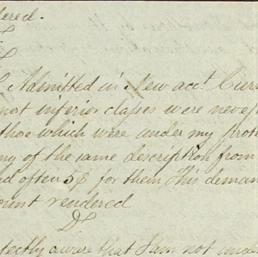 ered.
Admitted in New acct. Curr
not inferior classes were neve
those which were under my prote
ny of the same description from
d often 5$ for them This deman
ount rendered
rfectly aware that I am not unde